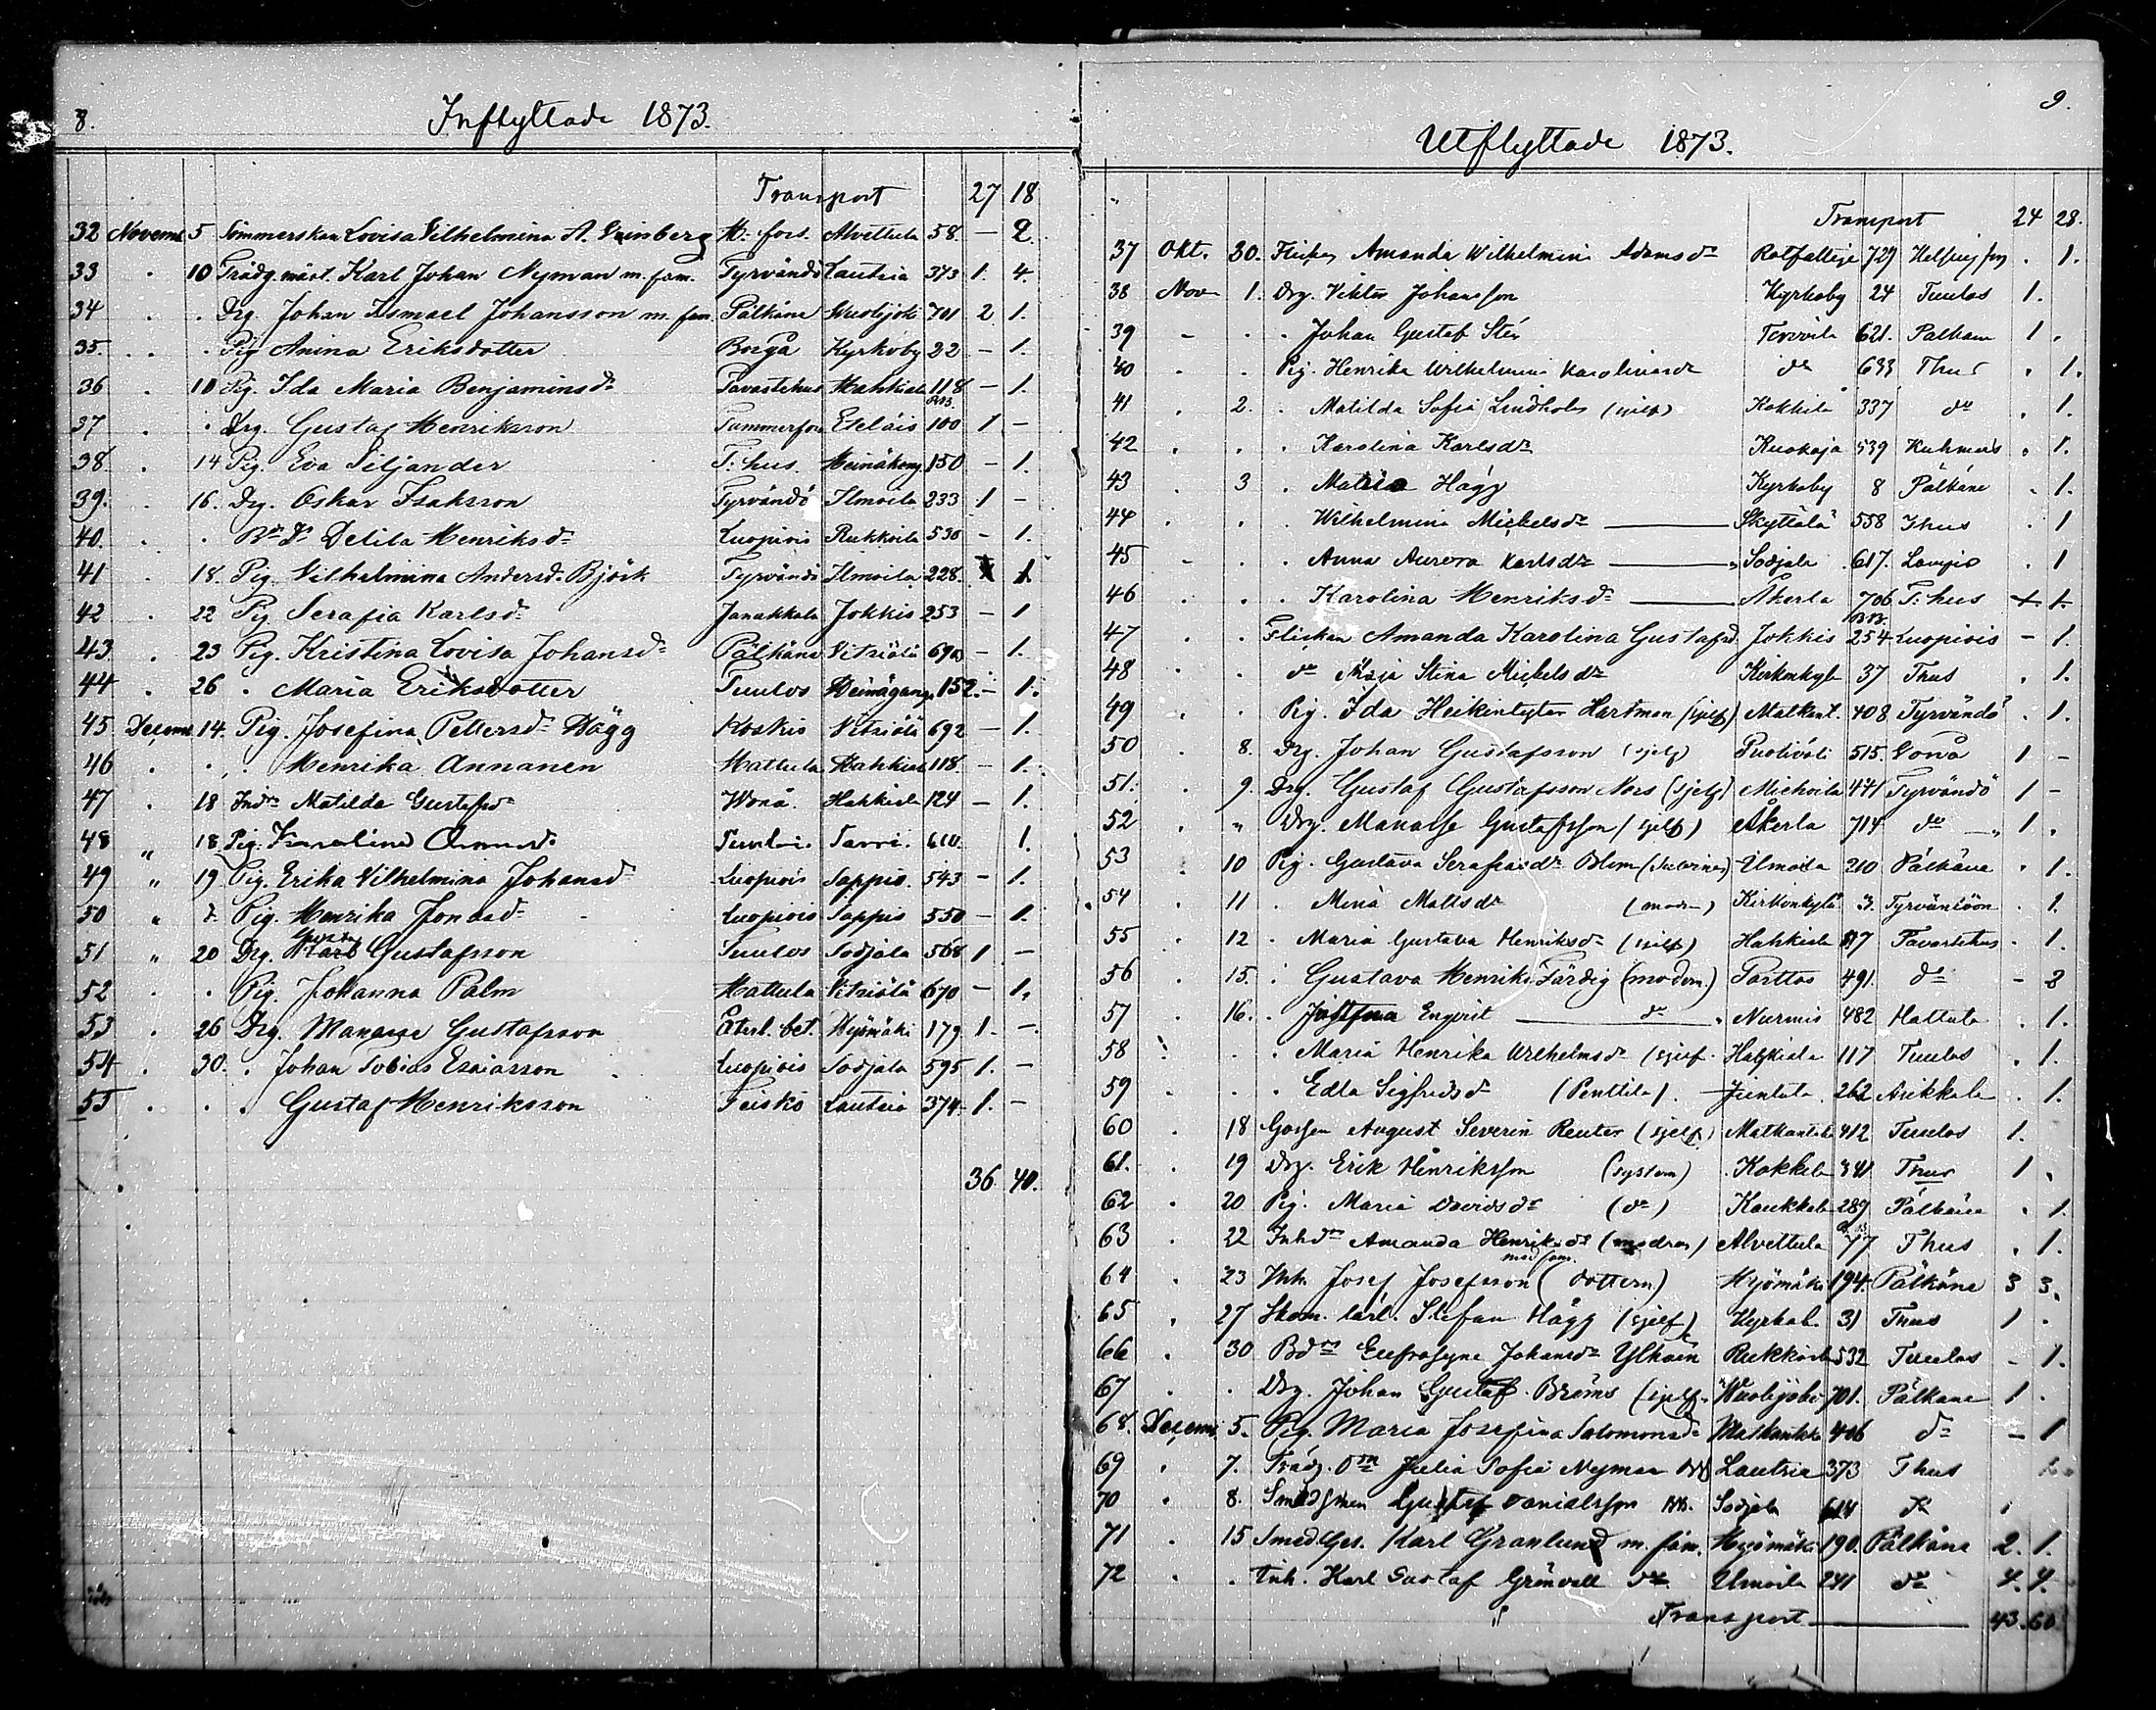 8.
Inflyttade 1873.
Transport 27 18
32 Novemb. 5 Sömmerskan Lovisa Vilhelmina A. Grinberg H:fors. Alvettula 58. — 2.
33 . 10 Trädg.mäst. Karl Johan Nyman m. fam. Tyrvändö Lautsia 373 1. 4.
34 . . Drg. Johan Ismael Johansson m. fam. Pälkäne Wuolijoki 701 2. 1.
35. . . Pig Anina Eriksdotter Borgå Kyrkoby 22 — 1.
36 . 10 Pig. Ida Maria Benjaminsdr Tavastehus Hahkiala 118 — 1.
37 . . Drg. Gustaf Henriksson Tammerfors Eteläis 100 1 —
38 . 14 Pig. Eva Siljander T:hus. Heinäkang. 150 — 1.
39. . 16. Drg. Oskar Isaksson Tyrvändö Ilmoila 233 1 —
40. . . Delila Henriksdr Luopiois Rukkoila 530 — 1.
41 . 18. Pig. Vilhelmina Andersdr Björk Tyrvändö Ilmoila 228. 1.
42 . 22 Pig Serafia Karlsdr Janakkala Jokkis 253 — 1
43 . 23 Pig. Kristina Lovisa Johansdr Pälkäne Vitsiälä 690 — 1.
44 . 26 . Maria Eriksdotter Tuulos Heinägang. 152. — 1.
45 Decemb. 14. Pig. Josefina Pettersdr Hägg Koskis Vitsiälä 692 — 1.
46 . . . Henrika Annanen Hattula Hahkiala 118. — 1.
47 . 18 Indr Matilda Gustafsdr Wonå. Hahkiala 124 — 1.
48 „ 18 Pig. Karolina Tuulos. 610. 1.
49 „ 19 Pig. Erika Vilhelmina Johansdr Luopiois Sappis. 543 — 1.
50 „ d. Pig. Henrika Jonasdr Luopiois Sappis 550 — 1.
51 „ 20 Drg. Gustafsson Tuulos Sodjala 568 1 —
52 . . Pig. Johanna Palm Hattula Vitsiälä 670 — 1.
53 . 26 Drg. Manasse Gustafsson Återl. bet. Hyömäki 179 1. —
54 . 30. . Johan Tobias Esaiasson Luopiois Sodjala 595 1. —
55 . . . Gustaf Henriksson Teisko Lautsia 374 1. —
36 40.
9.
Utflyttade 1873.
Transport 24 28.
37 Okt. 30. Flickan Amanda Wilhelmina Adamsdr Rotfattige 729 Helsingfors . 1.
38 Nov. 1. Drg. Viktor Johansson Kyrkoby 24 Tuulos 1.
39 - . . Johan Gustaf Stén Torvoila 621. Pälkäne 1 .
40 . . Pig. Henrika Wilhelmina Karolinasdr do 633 Thus . 1.
41 . 2. . Matilda Sofia Lindholm (sjelf) Kokkila 337 do . 1.
42 . . . Karolina Karlsdr 539 Kuhmois . 1.
43 . 3 . Maria Hägg Kyrkoby 8 Pälkäne . 1.
44 . . . Wilhelmina Mickelsdr — Skyttälä 558 Thus . 1
45 - . . Anna Aurora Karlsdr — Sodjala 617. Lampis . 1
46 . . . Karolina Henriksdr — Åkerla 706 T:hus 1.
47 . . Flickan Amanda Karolina Gustafsd. Jokkis 254 Luopiois — 1.
48 . . do Maja Stina Mickelsdr Kirkonkylä 37 Thus . 1.
49 . . Pig. Ida Heikintytär Hartman (sjelf) Matkant. 408 Tyrvändö . 1.
50 . 8. Drg. Johan Gustafsson (sjelf) Puolivöli 515. Wonå 1 —
51. . 9. Drg. Gustaf Gustafsson Nors (sjelf) Miehoila 441 Tyrvändö 1 —
52 . „ Drg. Manasse Gustafsson (sjelf) Åkerla 714 do 1 .
53 . 10 Pig. Gustava Serafiasdr Blom Ilmoila 210 Pälkäne . 1.
54 . 11 . Mina Mattsdr (modr) Kirkonkylä 3. Tyrväntöön . 1.
55 . 12 . Maria Gustava Henriksdr (sjelf) Hahkiala 117 Tavastehus . 1.
56 . 15. . Gustava Henriks. Färdig (modern.) Porttas 491. do — 2
57 . 16. . Josefina Engvist — do Nurmis 482 Hattula . 1.
58 . . . Maria Henrika Wilhelmsdr (sjelf. Hahkiala 117 Tuulos . 1.
59 . . . Edla Sigfridsd (Penttila). Jientula. 262 Asikkala . 1.
60 . 18 Gossen August Severin Reuter (sjelf) Matkantaka 412 Tuulos 1.
61. . 19 Drg. Erik Henriksson (system) Kokkila 341 Thus 1 .
62 . 20 Pig. Maria Davidsdr (do) Kaukkala 289 Pälkäne . 1.
63 . 22 Inhdr Amanda Henriksdr (modren) Alvettula 77 Thus . 1.
64 . 23 Inh. Josef Josefsson med fam. (dottern) Hyömäki 194. Pälkäne 3 3.
65 . 27 Skom. lärl. Stefan Hägg (sjelf) Kyrkob. 31 Thus 1 .
66 . 30 Bdr Eufrosyne Johansdr Ylhäin Rukkoila 532 Tuulos — 1.
67 . . Drg. Johan Gustaf Broms (sjelf. Wuolijoki 701. Pälkäne 1 .
68. Decemb. 5. Pig. Maria Josefina Salomonsdr Matkantaka 406 do — 1
69 . 7. Trädg. Julia Sofia Nyman Lautsia 373 Thus
70 . 8. Smedjman Gustaf Danielsson Sodjala 614 do 1
71 . 15 Smed.Ges. Karl Granlund m. fam. Hyömäki 190. Pälkäne 2. 1.
72 . . Inh. Karl Gustaf Grönvall do Ilmoila 241 do 4. 4.
Transport — 43. 60.